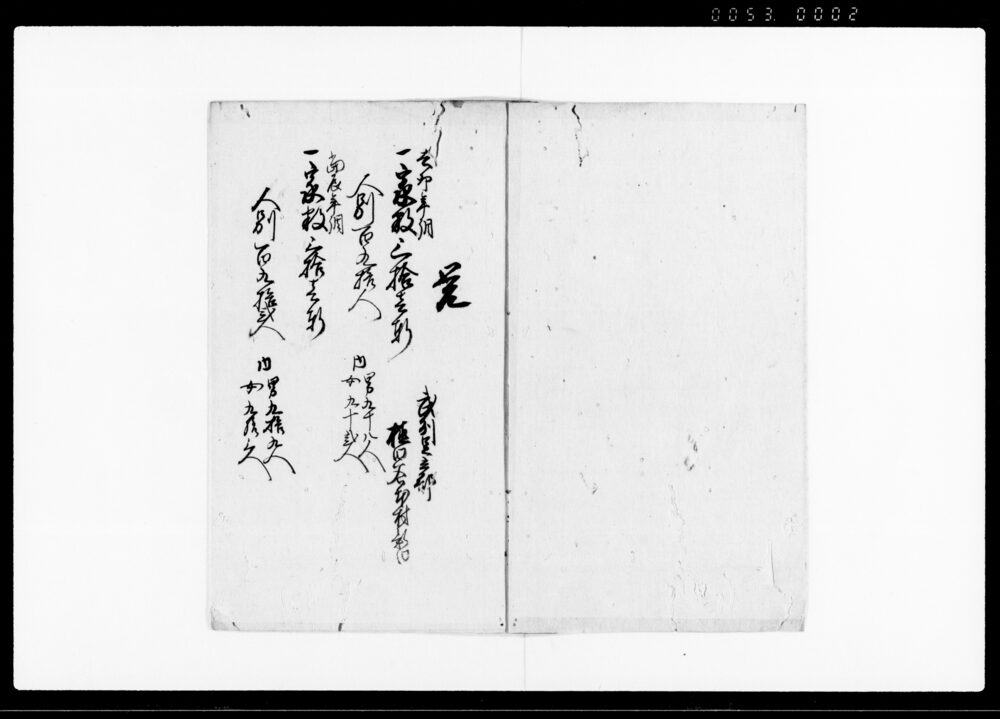 0053 0002
覚
武州足立郡
植田谷本村
去卯年調
一家数三拾壱軒
人別百九拾人
内
男九十八人
女九十弐人
当辰年調
一家数三拾壱軒
人別百九拾弐人
内
男九拾九人
女九拾